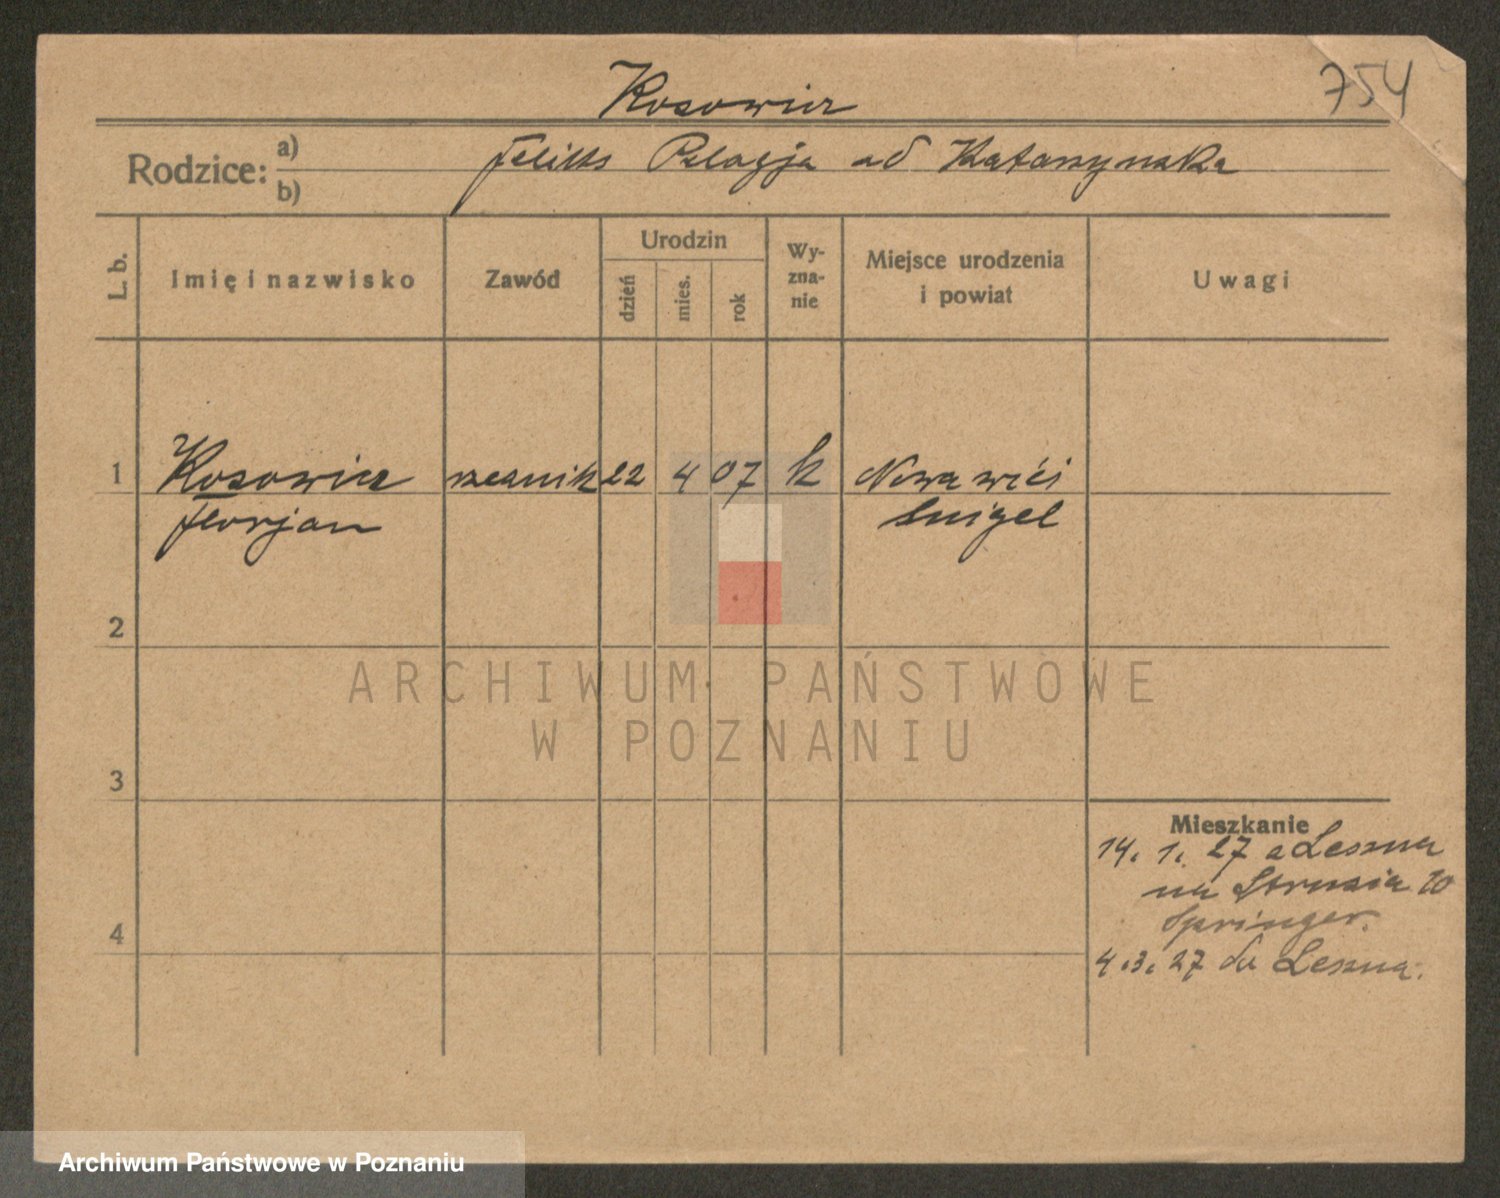 754
Kosowicz
Rodzice: a) b)
Feliks Pelagja od Katarzynska
L. b.
Imię i nazwisko
Zawód
Urodzin
dzień
mies.
rok
Wy-
zna-
nie
Miejsce urodzenia
i powiat
Uwagi
1
Kosowicz
22
4
07
k
Nowa wieś
Florjan
Śmigel
2
3
4
Mieszkanie
14. 1. 27 z Leszna
na Strusia 10
Springer.
4.3.27 do Leszna.
ARCHIWUM PAŃSTWOWE
W POZNANIU
Archiwum Państwowe w Poznaniu